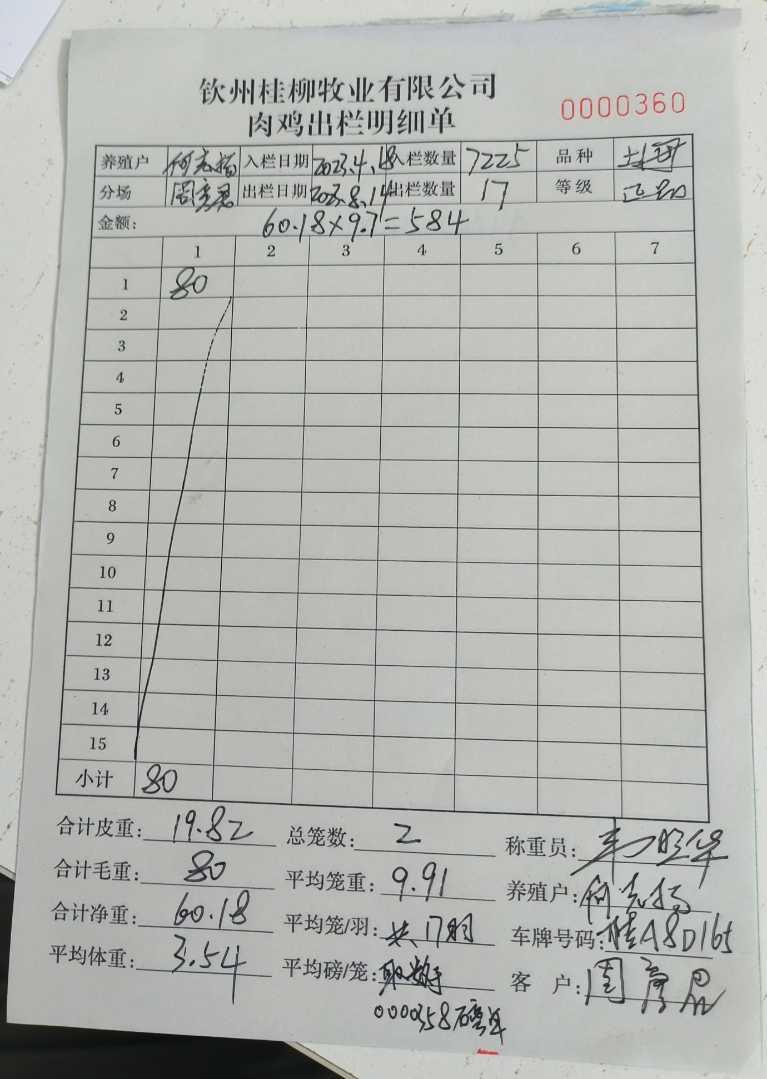 钦州桂柳牧业有限公司
肉鸡出栏明细单
0000360
养殖户 何志扬 入栏日期 2023.4.18 入栏数量 7225 品种 土
分场 出栏日期 2023.8.14 出栏数量 17 等级
金额: 60.18×9.7=584
1 2 3 4 5 6 7
1 80
2
3
4
5
6
7
8
9
10
11
12
13
14
15
小计 80
合计皮重: 19.82 总笼数: 2 称重员: 旺华
合计毛重: 80 平均笼重: 9.91 养殖户: 何志扬
合计净重: 60.18 平均笼/羽: 共17羽 车牌号码: 桂A8D165
平均体重: 3.54 平均磅/笼: 客户: 周
0000358